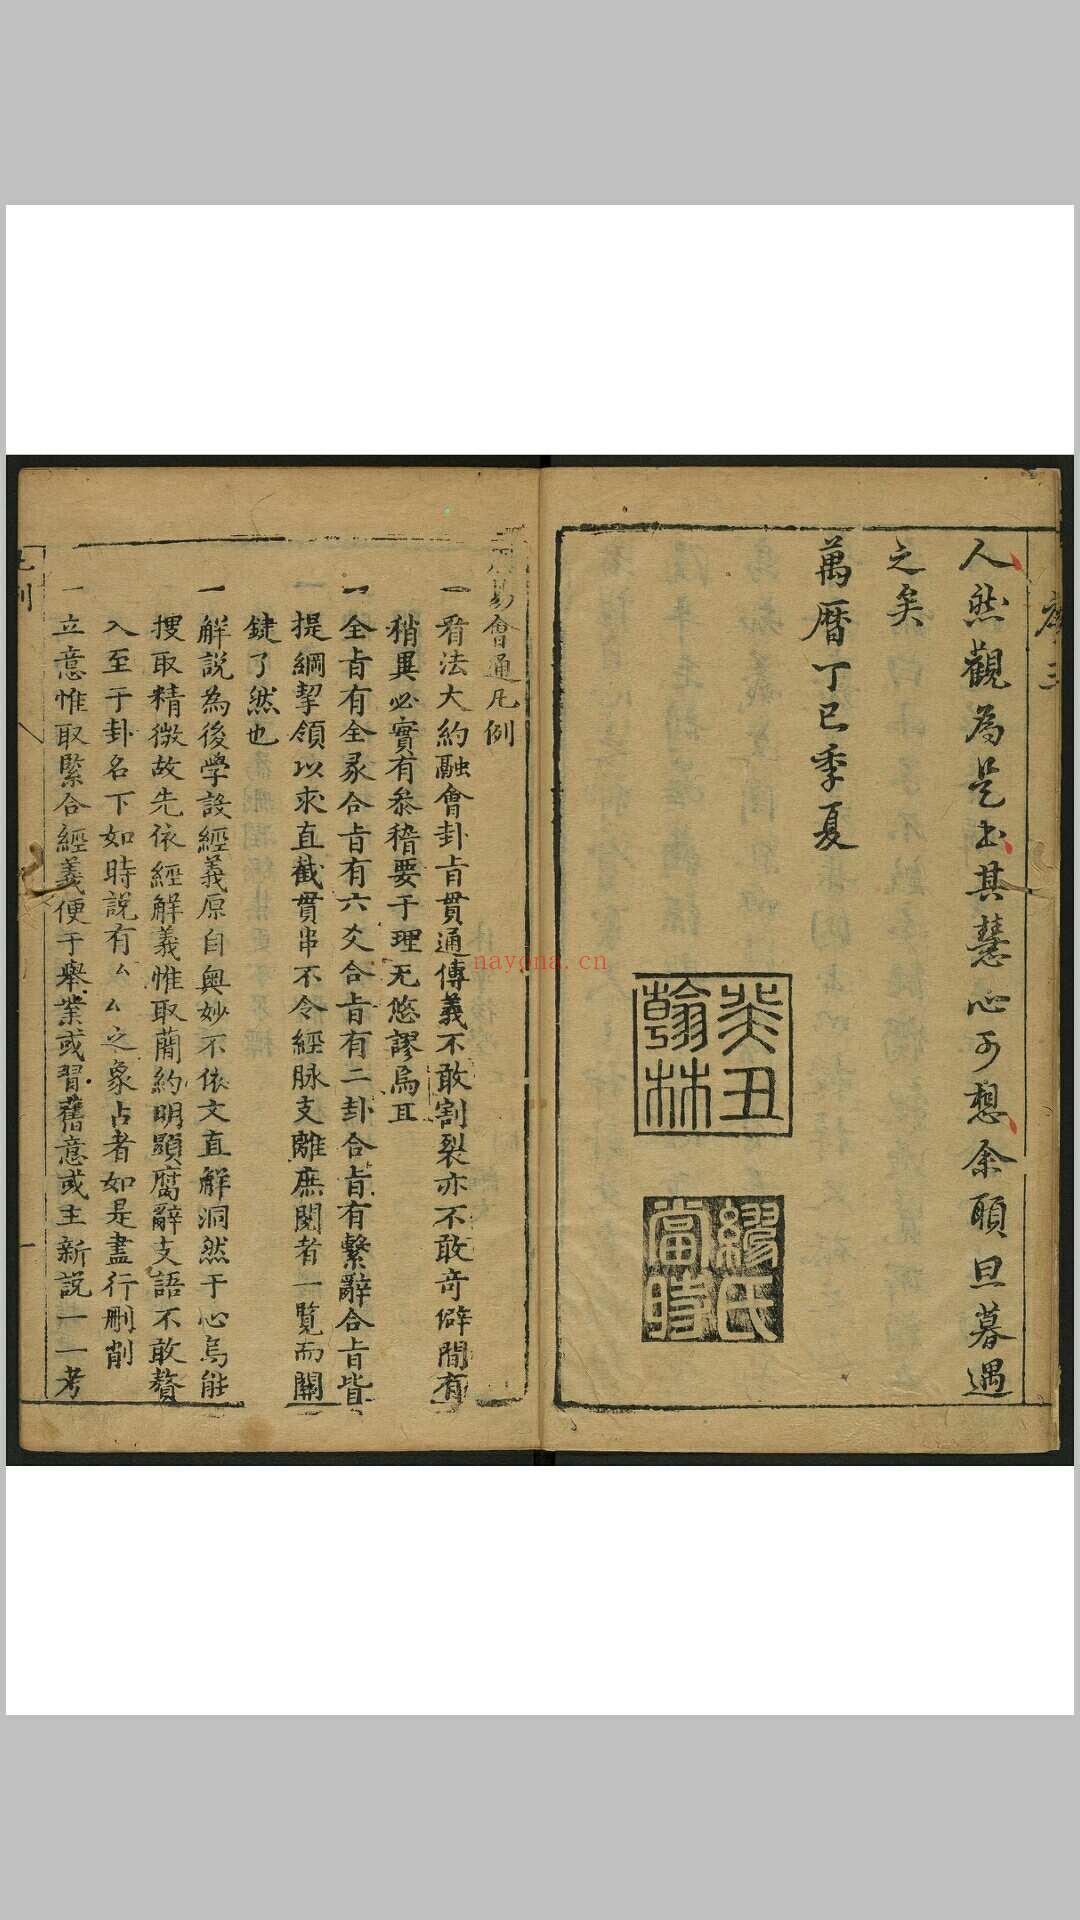 序 三
人然觀為是书其慧心可想余願旦暮遇
之矣
萬曆丁巳季夏
癸丑翰林
繆氏當時
周易會通凡例
一看法大約融會卦旨貫通傳義不敢割裂亦不敢奇僻間有
稍異必實有叅稽要于理无悠謬焉耳
一全旨有全彖合旨有六爻合旨有二卦合旨有繫辭合旨皆
提綱挈領以求直截貫串不令經脉支離庶閱者一覽而關
鍵了然也
一解說為後學設經義原自奥妙不依文直解洞然于心烏能
搜取精微故先依經解義惟取蕳約明顯腐辭支語不敢贅
入至于卦名下如時說有厶厶之象占者如是盡行刪削
一立意惟取緊合經義便于舉業或習舊意或主新說一一考
凡例
一
nayona.cn